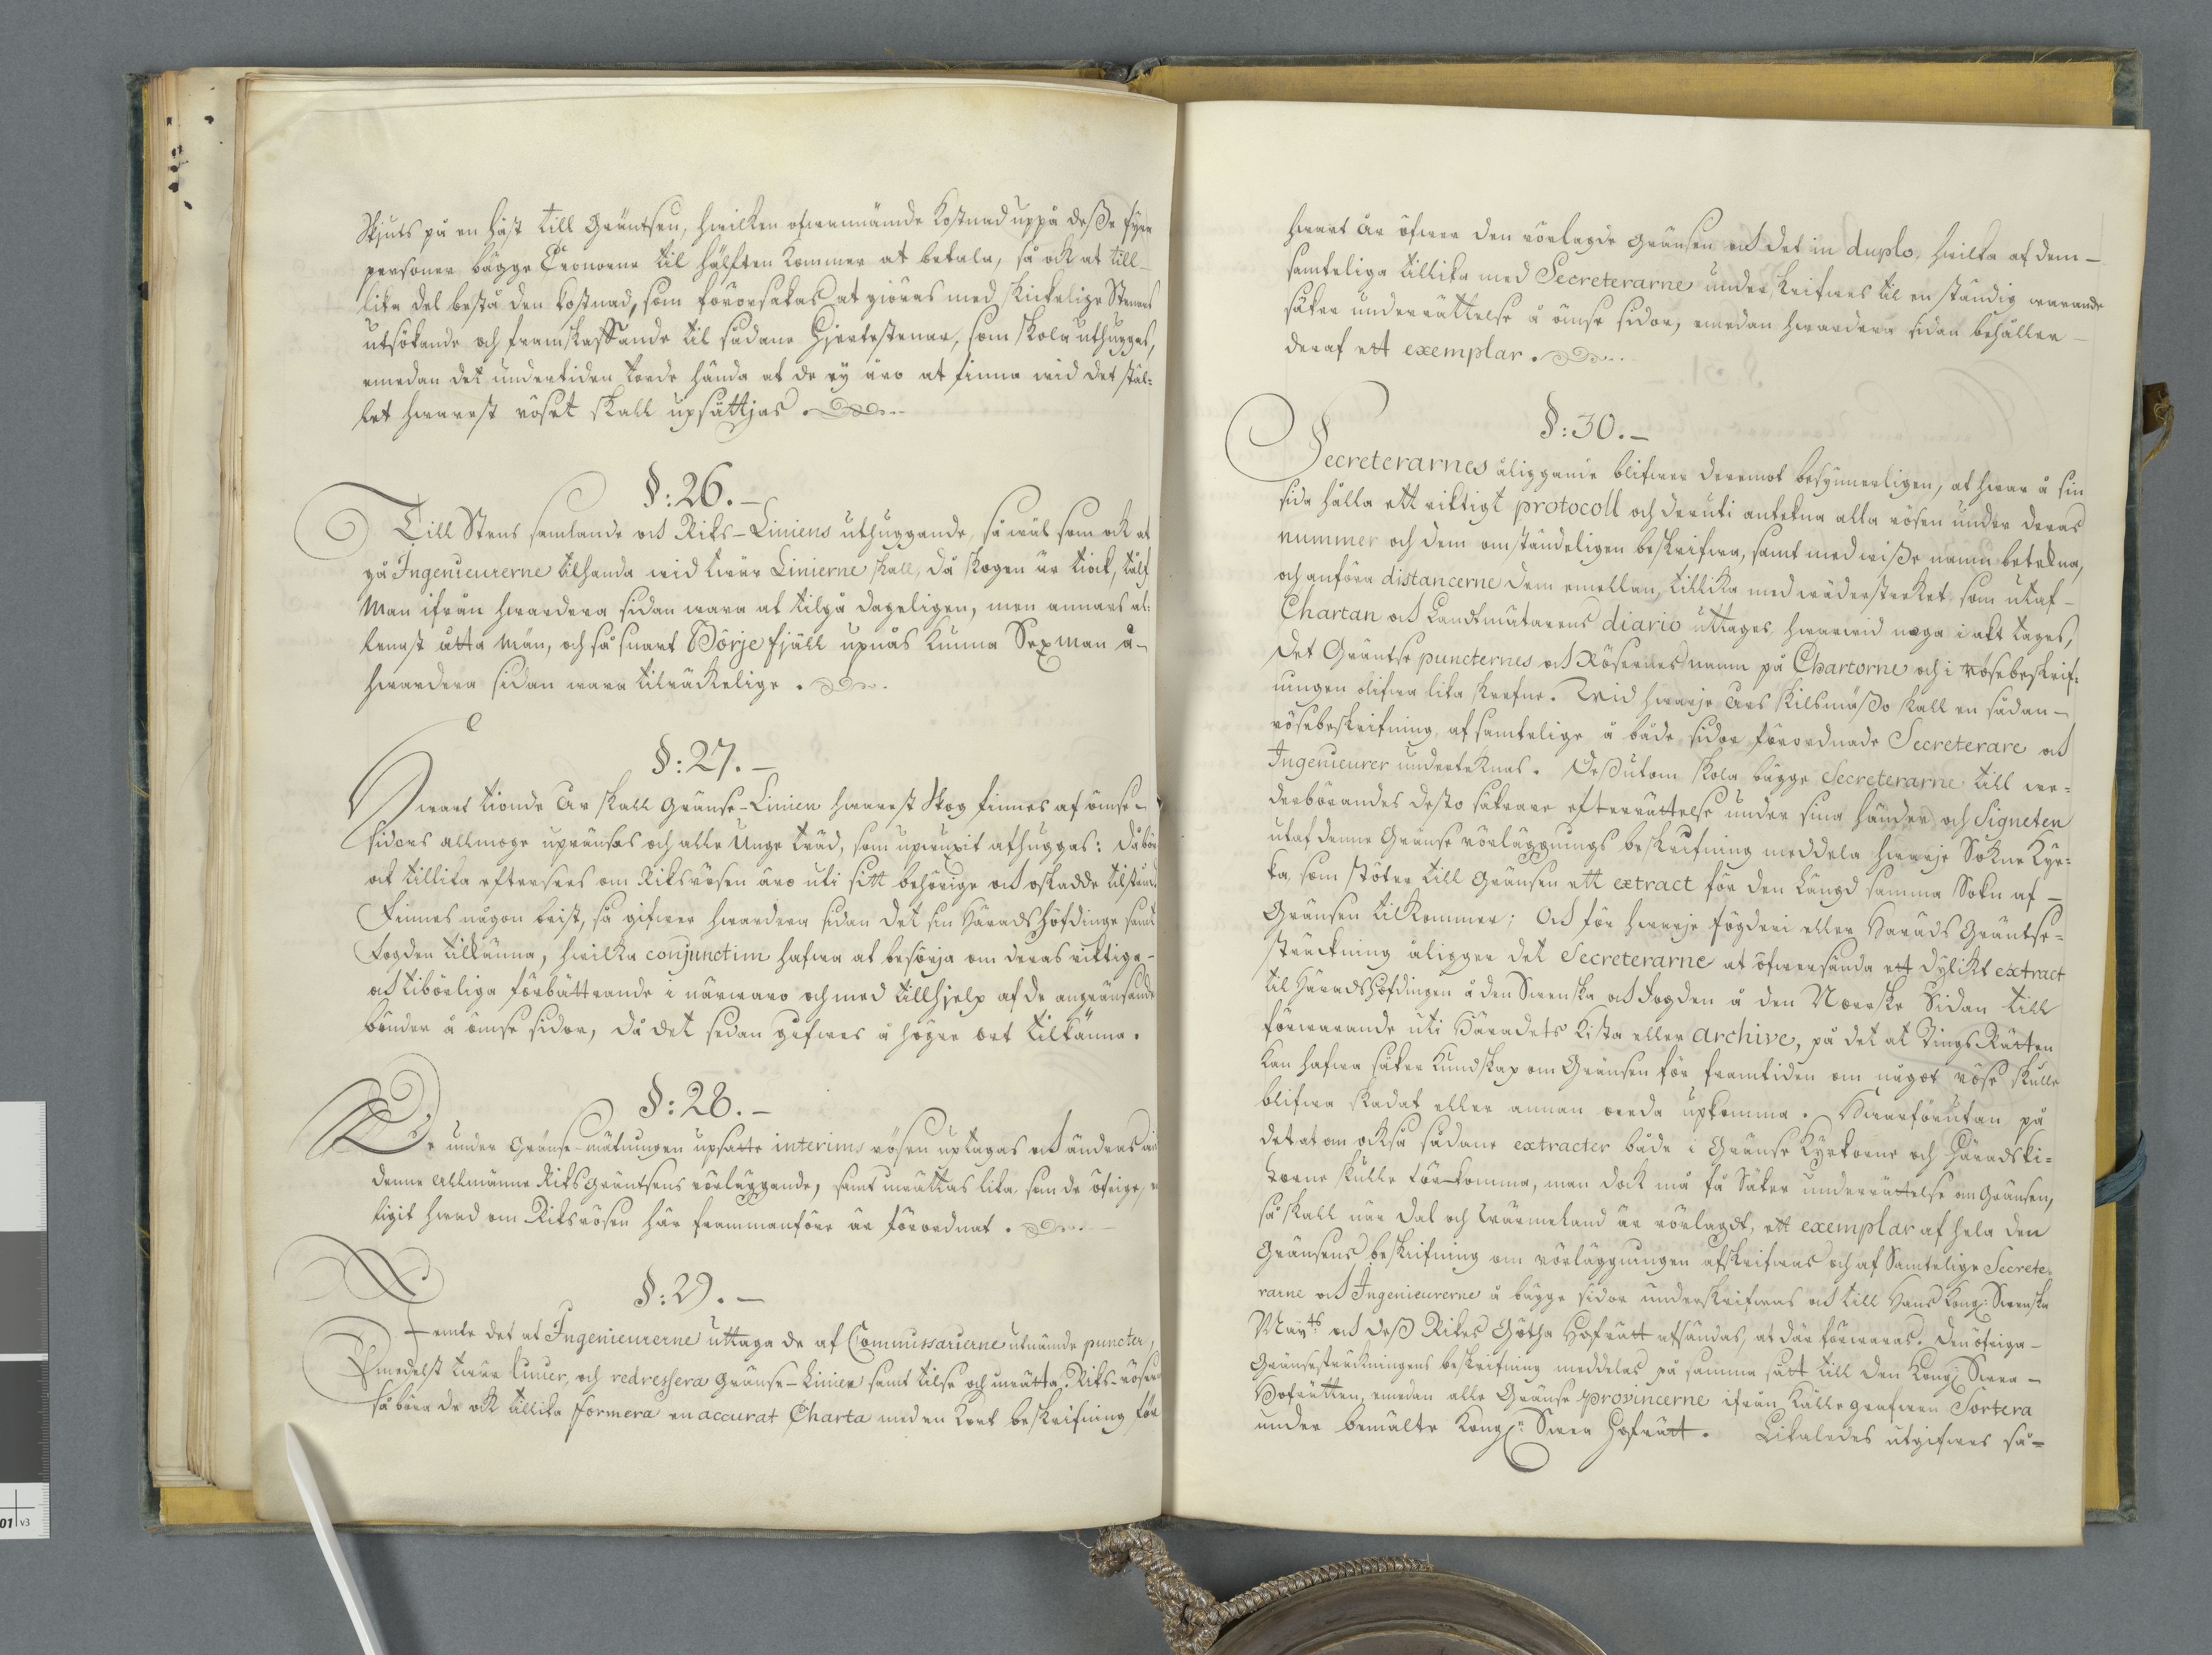 Skjuts på en häst till Gräntsen, hwilken ofwannämde Kostnad uppå desse fyra
personer bägge Cronorne til hälften Kommer at betala, så ock at till-
lika del bestå den kostnad, som förorsakas at giöras med skickelige Stenars
utsökande och framskaffande til sådane Hjertestenar, som skola uthuggas,
emedan det undertiden torde hända at de ey äro at finna wid det stäl=
let hwarest röset skall upsättjas.
§: 26.
Till Stens samlande och Riks-Liniens uthuggande, så wäl som ock at
gå Ingenieurerne tilhanda wid twär Linierne skall, då skogen är tiock, tolf
Man ifrån hwardera sidan wara at tilgå dageligen, men annars al=
lenast åtta Män, och så snart Börje fjäll upnås kunna Sex man å-
hwardera sidan wara tilräckelige.
§: 27.
Hwart tionde År skall Gränse-Linien hwarest Skog finnes af ömse-
sidors allmoge upränsas och alle Unge träd, som upwuxit afhuggas: då bör
ock tillika eftersees om Riksrösen äro uti sitt behörige och oskadde tilstånd.
Finnes någon brist, så gifwer hwardera sidan det sin Häradshöfdinge samt
Fogden tillkänna, hwilka conjunctim hafwa at besörja om deras riktiga-
och tilbörliga förbättrande i närwaro och med tillhjelp af de angränsande
bönder å ömse sidor, då det sedan gifwes å högre ort tilkänna.
§: 28.
De under Gränse-mätningen upsatte interims rösen uptagas och ändras wid
denne Allmänne Riks Gräntsens rörläggande, samt inrättas lika som de öfrige,
ligit hwad om Riksrösen här frammanföre är förordnat.
§: 29.
Jemte det at Ingenieurerne uttaga de af Commissarierne utnämde puncter,
medelst twär linier, och redressera Gränse-Linien samt tilse och inrätta Riks-rösen
så böra de ock tillika formera en accurat Charta med en kort beskrifning för
hwart År öfwer den rörlagde Gränsen och det in duplo, hwilka af dem-
samteliga tillika med Secreterarne underskrifwes til en ständig warande
säker underrättelse å ömse sidor, emedan hwardera sidan behåller
deraf ett exemplar.
§: 30.
Secreterarnes åliggande blifwer deremot besynnerligen, at hwar å sin
sida hålla ett riktigt protocoll och deruti antekna alla rösen under deras
nummer och dem omständeligen beskrifwa, samt med wisse namn betekna,
och anföra distancerne dem emellan, tillika med wäderstreket som utaf-
Chartan och Landtmätarens diario uttages, hwarwid noga i akt tages,
det Gräntse puncternes och Rösernes namn på Chartorne och i rösebeskrif=
ningen blifwa lika skrefne. Wid hwarje Års skilsmässo skall en sådan-
rösebeskrifning af samtelige å både sidor förordnade Secreterare och
Ingenieurer underteknas. Dessutom skola bägge Secreterarne till we=
derbörandes desto säkrare efterrättelse under sina händer och Signeten
utaf denne Gränse rörläggnings beskrifning meddela hwarje Sokne Kyr=
ka, som stöter till Gränsen ett extract för den Längd samma Sokn af-
Gränsen tilkommer; Och för hwarje fögderi eller Härads Gräntse=
sträckning åligger det Secreterarne at öfwersända ett dylikt extract
til Häradshöfdingen å den Swenska och Fogden å den Norrske Sidan till
förwarande uti Häradets Kista eller Archive, på det at TingsRätten
kan hafwa säker kundskap om Gränsen för framtiden om något röse skulle
blifwa skadat eller annan oreda upkomma. Hwarförutan på
det at om också sådane extracter både i Gränse Kyrkorne och Häradski=
storne skulle förkomma, man dock må få säker underrättelse om Gränsen,
så skall när Dal och Wärmeland är rörlagdt, ett exemplar af hela den
Gränsens beskrifning om rörläggningen afskrifwas och af Samtelige Secrete=
rarne och Ingenieurerne å bägge sidor underskrifwas och till Hans Kongl: Swenska
May:ts och Dess Rikes Götha Hofrätt afsändas, at där förwaras. Den öfriga-
Gränsesträckningens beskrifning meddelas på samma sätt till den Kongl: Swea-
Hofrätten, emedan alle Gränse provincerne ifrån Källegrafwen Sortera
under bemälte Kongl: Swea Hofrätt. Likaledes utgifwes så=